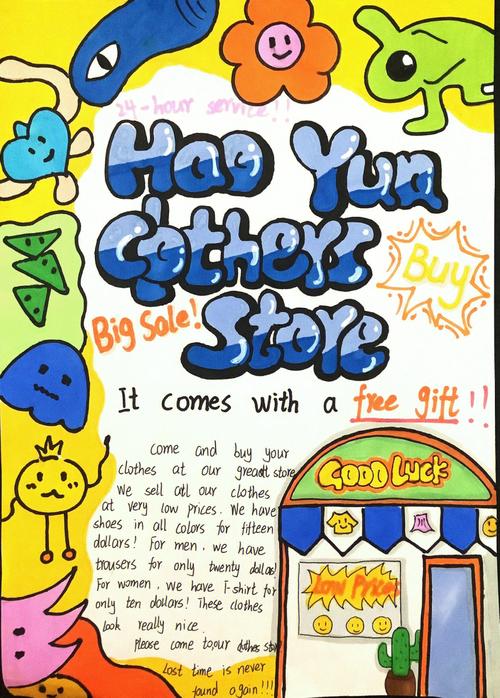 24-hour service!!
Hao Yun
Cothers
Store
Buy
Big Sale!
It comes with a free gift!!
Come and buy your
clothes at our great store
We sell all our clothes
at very low prices. We have
shoes in all colors for fifteen
dollars! For men, we have
trousers for only twenty dollas!
For women, we have T-shirt for
only ten dollars! These clothes
look really nice.
Please come to our clothes store
Lost time is never
found again!!!
GOOD LUCK
Low Prices